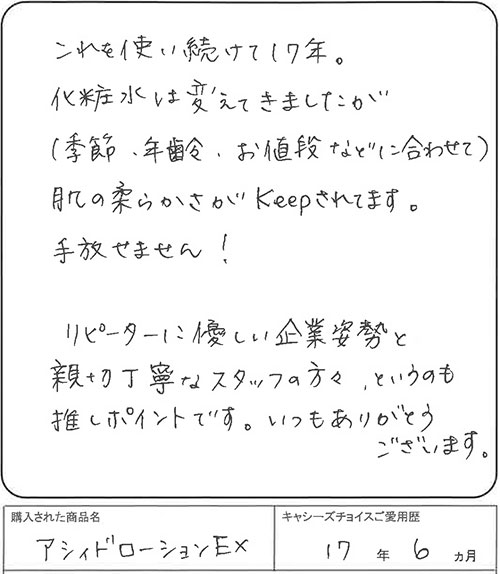 これを使い続けて17年。
化粧水は変えてきましたが
(季節、年齢、お値段などに合わせて)
肌の柔らかさがKeepされてます。
手放せません!
リピーターに優しい企業姿勢と
親切丁寧なスタッフの方々、というのも
推しポイントです。いつもありがとう
ございます。
購入された商品名
アシィドローションEX
キャシーズチョイスご愛用歴
17年6ヵ月